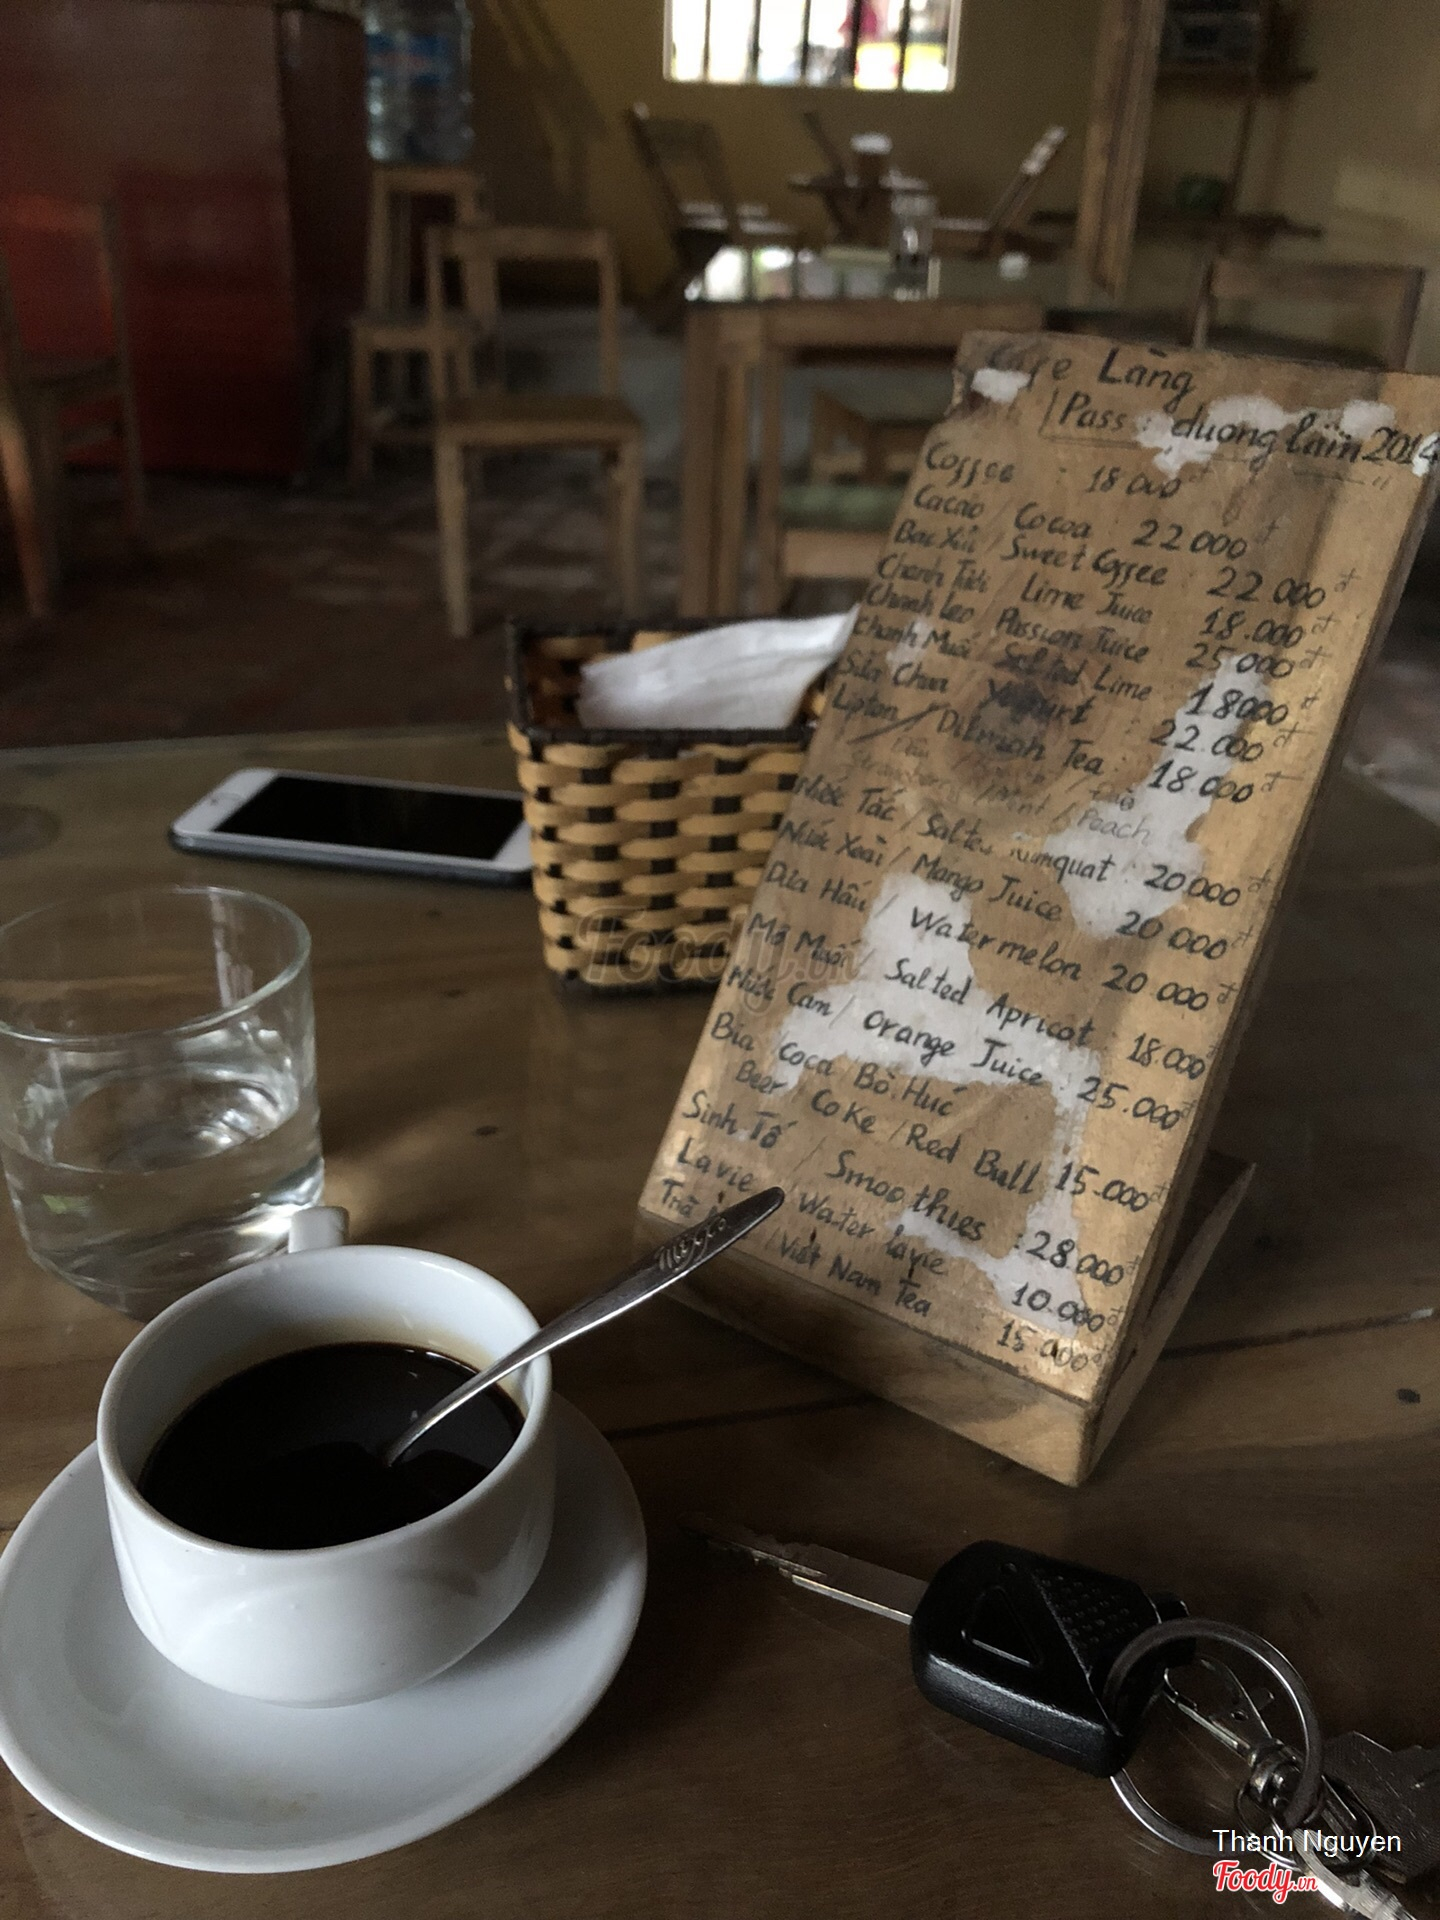 Cafe Làng
Pass : duonglam2014
Coffee : 18 000đ
Cacao / Cocoa : 22 000đ
Bạc Xỉu / Sweet Coffee : 22 000đ
Chanh Tươi / Lime Juice 18.000đ
Chanh Leo / Passion Juice 25 000đ
Chanh Muối / Salted Lime 18000đ
Sữa Chua / Yogurt : 22.000đ
Lipton / Dilmah Tea : 18 000đ
Strawberry / Mint / Peach
Nước Tắc / Salted Kumquat : 20000đ
Nước Xoài / Mango Juice : 20 000đ
Dưa Hấu / Water melon : 20 000đ
Mơ Muối / Salted Apricot : 18.000đ
Nước Cam / Orange Juice : 25.000đ
Bia Coca Bò Húc
Beer / Coke / Red Bull 15.000đ
Sinh Tố / Smoothies : 28.000đ
Lavie / Water lavie 10.000đ
Trà / Việt Nam Tea 15 000đ
Foody.vn
Thanh Nguyen
Foody.vn